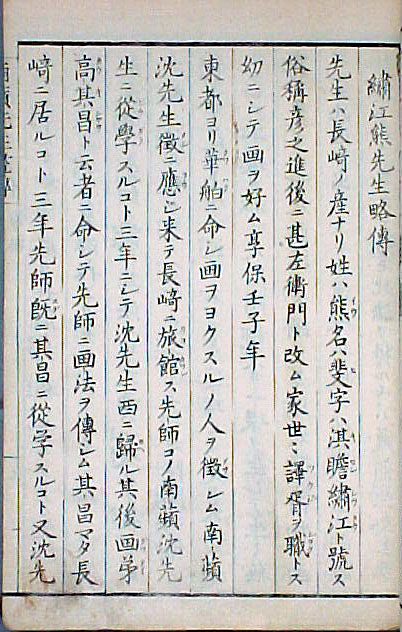 繍江熊先生略傳
先生ハ長﨑ノ産ナリ姓ハ熊名ハ斐字ハ淇瞻繍江ト號ス
俗稱彦之進後ニ甚左衛門ト改ム家世〻譯胥ヲ職トス
幼ニシテ画ヲ好ム享保壬子年
東都ヨリ華舶ニ命シ画ヲヨクスルノ人ヲ徴シム南蘋
沈先生徴ニ應シ来テ長﨑ニ旅館ス先師コノ南蘋沈先
生ニ從學スルコト三年ニシテ沈先生西ニ歸ル其後画弟
高其昌ト云者ニ命シテ先師ニ画法ヲ傳シム其昌マタ長
﨑ニ居ルコト三年先師既ニ其昌ニ從学スルコト又沈先